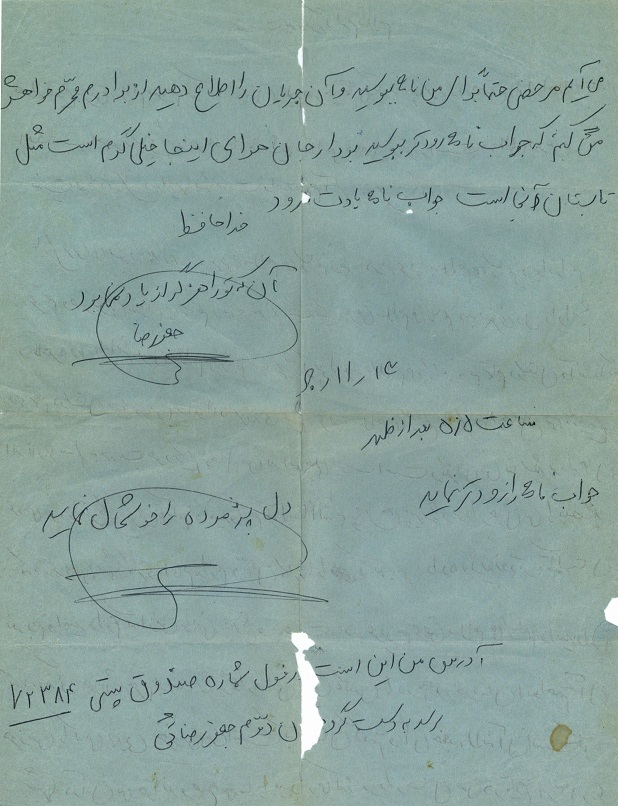 می‌آیم مرخصی حتماً برای من نامه بنویسید و آن جریان را اطلاع دهید از برادرم محرّم خواهش
می‌کنم که جواب نامه زودتر بنویسید هوای اینجا خیلی گرم است مثل
تابستان آنجا است جواب نامه یادت نرود
خداحافظ
آن که تو را هرگز از یاد نمی‌برد
جعفر رضا
ساعت ۵/۵ بعد از ظهر
جواب نامه را زودتر نمایید
دل پژمرده را خوشحال نمایید
آدرس من این است دزفول شماره صندوق پستی ۷۲۳۸۴
برسد به دست دوّم جعفر رضائی